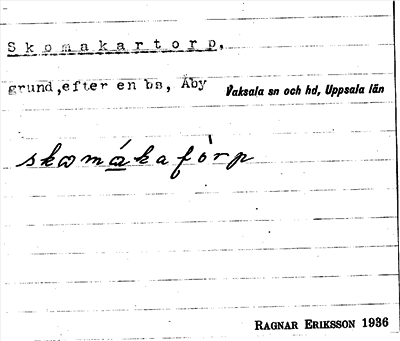 Skomakartorp,
grund, efter en bs, Åby Vaksala sn och hd, Uppsala län
RAGNAR ERIKSSON 1936